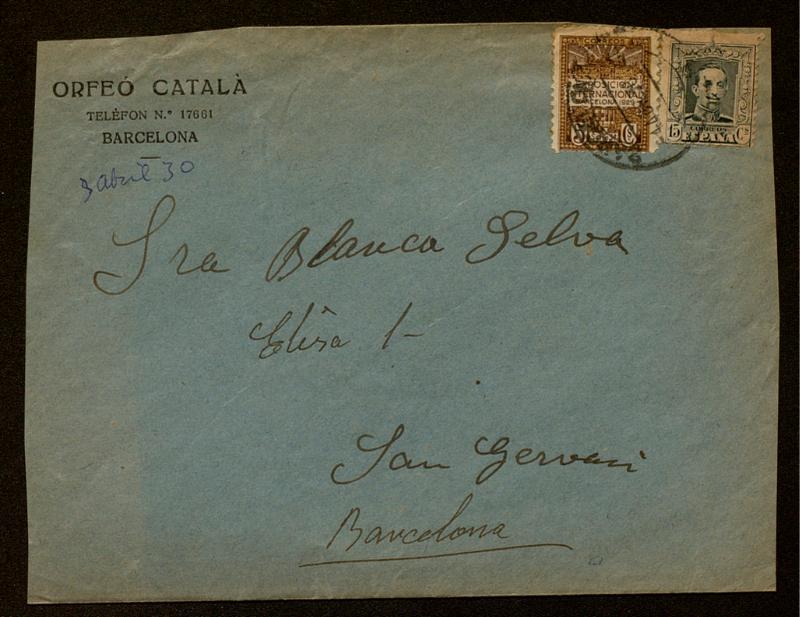 ORFEÓ CATALÀ
TELÈFON N.º 17661
BARCELONA
3 abril 30
CORREOS
EXPOSICION
INTERNACIONAL
BARCELONA 1929
5 Cs
15 CORREOS Cs
ESPAÑA
Sra Blanca Selva
Elisa 1-
San Gervasi
Barcelona